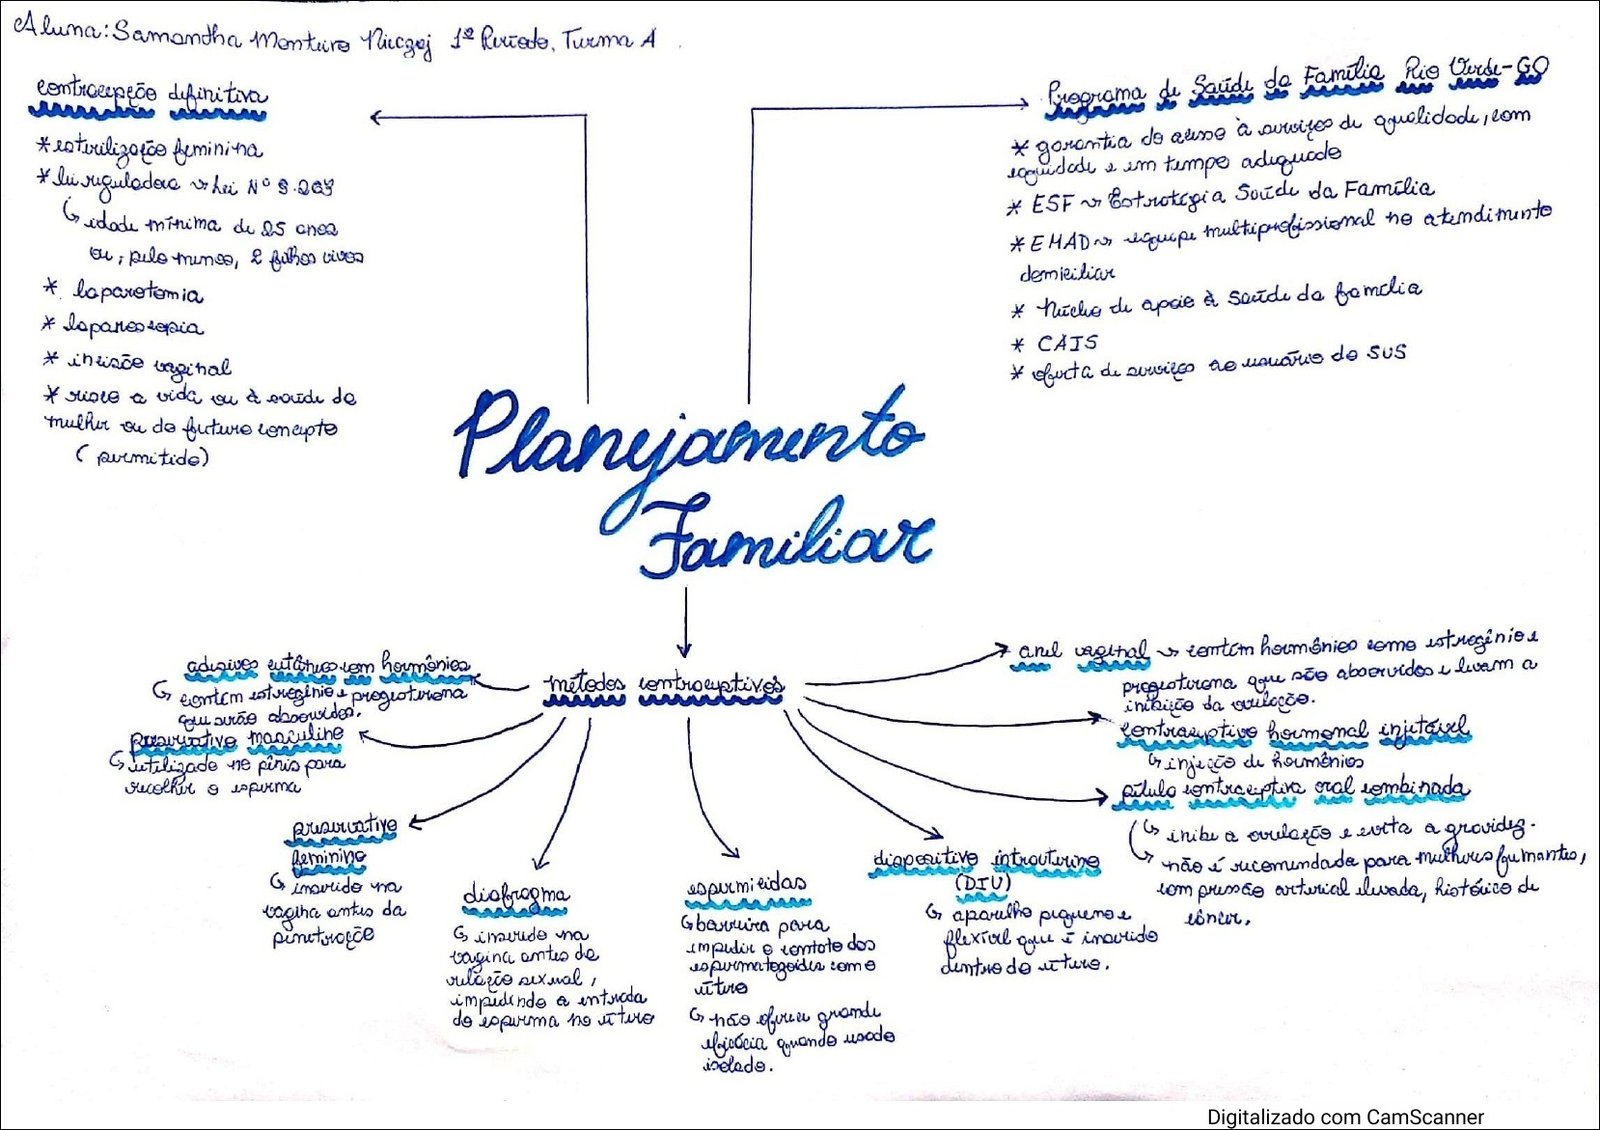 Aluna: Samantha Monteiro 1º Período, Turma A
contracepção definitiva
* esterilização feminina
* lei reguladora → Lei Nº 9.263
↳ idade mínima de 25 anos
ou, pelo menos, 2 filhos vivos
* laparotomia
* laparoscopia
* incisão vaginal
* risco a vida ou à saúde da
mulher ou do futuro concepto
(permitido)
Programa de Saúde da Família Rio Verde-GO
* garantia do acesso à serviços de qualidade, com
equidade e em tempo adequado
* ESF → Estratégia Saúde da Família
* EMAD → equipe multiprofissional no atendimento
domiciliar
* Núcleo de apoio à Saúde da família
* CAIS
* oferta de serviços ao usuário do SUS
Planejamento
Familiar
métodos contraceptivos
adesivos cutâneos com hormônios
↳ contém estrogênio e progesterona
que serão absorvidos.
preservativo masculino
↳ utilizado no pênis para
recolher o esperma
preservativo
feminino
↳ inserido na
vagina antes da
penetração
diafragma
↳ inserido na
vagina antes da
relação sexual,
impedindo a entrada
do esperma no útero
espermicidas
↳ barreira para
impedir o contato dos
espermatozoides com o
útero
↳ não oferece grande
eficácia quando usado
isolado.
dispositivo intrauterino
(DIU)
↳ aparelho pequeno e
flexível que é inserido
dentro do útero.
anel vaginal → contém hormônios como estrogênio e
progesterona que são absorvidos e levam a
inibição da ovulação.
contraceptivo hormonal injetável
↳ injeção de hormônios
pílula contraceptiva oral combinada
↳ inibe a ovulação e evita a gravidez.
↳ não é recomendada para mulheres fumantes,
com pressão arterial elevada, histórico de
câncer.
Digitalizado com CamScanner